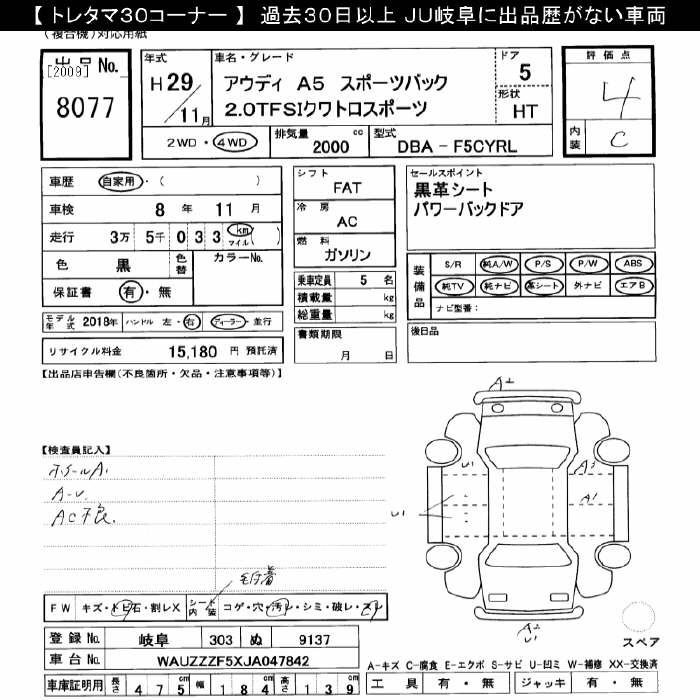 【 トレタマ30コーナー 】 過去30日以上 JU岐阜に出品歴がない車両
(複合機)対応用紙
出品 No.
[2009]
8077
年式
H 29 / 11月
車名・グレード
アウディ A5 スポーツバック
2.0TFSIクワトロスポーツ
ドア
5
形状
HT
評価点
4
内装
C
2WD・4WD
排気量
2000 cc
型式
DBA - F5CYRL
車歴 自家用・( )
車検 8 年 11 月
走行 3万 5千 0 3 3 km マイル ( )
色 黒 色替 カラーNo.
保証書 有・無
モデル年式 2018年 ハンドル 左・右 ディーラー・並行
リサイクル料金 15,180 円 預託済
シフト
FAT
冷房
AC
燃料
ガソリン
乗車定員 5 名
積載量 kg
総重量 kg
書類期限
月 日
セールスポイント
黒革シート
パワーバックドア
装備品
S/R 純A/W P/S P/W ABS
純TV 純ナビ 革シート 外ナビ エアB
ナビ型番:
後日品
【出品店申告欄(不良箇所・欠品・注意事項等)】
【検査員記入】
ホイールA1
A-U
AC不良
A2
U1
A3
A1
U1
A2
U1
FW キズ・トビ石・割レX シート内装 コゲ・穴・汚レ・シミ・破レ・スレ
登録 No. 岐阜 303 ぬ 9137
車台 No. WAUZZZF5XJA047842
車庫証明用 長さ 4 7 5 cm 幅 1 8 4 cm 高さ 1 3 9 cm
スペア
A-キズ C-腐食 E-エクボ S-サビ U-凹ミ W-補修 XX-交換済
工具 有・無 ジャッキ 有・無